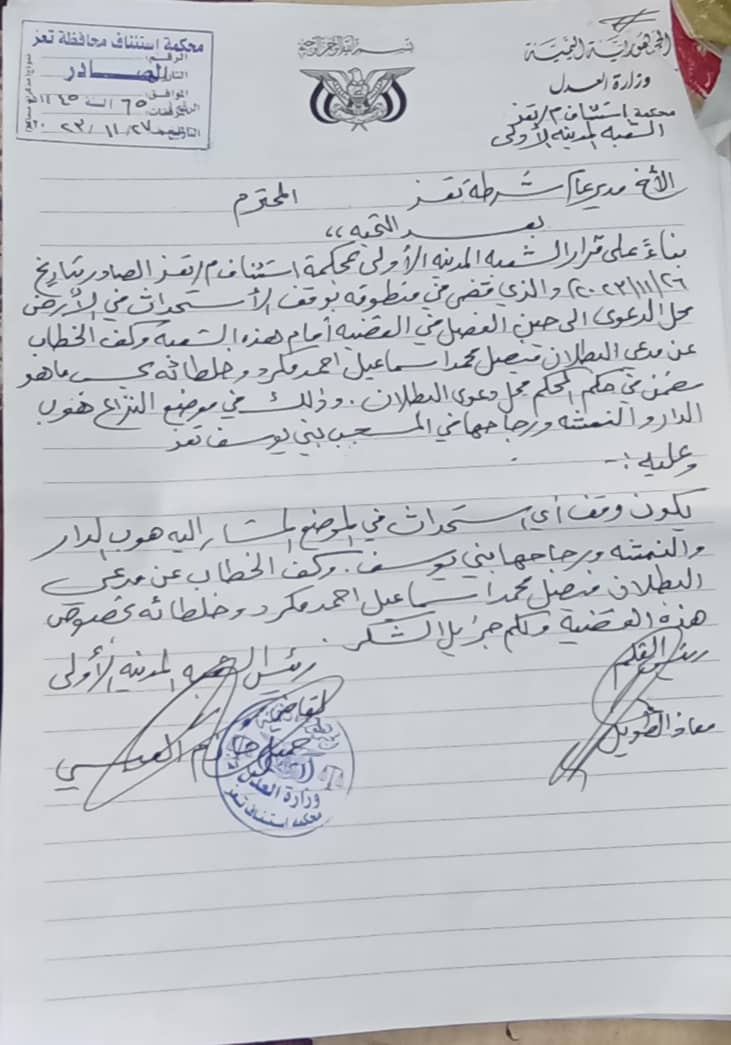 بسم الله الرحمن الرحيم
الجمهورية اليمنية
وزارة العدل
محكمة استئناف م/تعز
الشعبه المدنيه الأولى
محكمة استئناف محافظة تعز
الرقم:
الصادر
الموافق:
٦٥ لسنة ١٤٤٥
٢٠٢٣/١١/٢٧
الأخ مدير عام شرطة تعز المحترم
بعد التحيه ،،
بناءً على قرار الشعبه المدنيه الأولى بمحكمة استئناف م/تعز الصادر بتاريخ
٢٠٢٣/١١/٢٦ والذي قضى في منطوقه بوقف الأستحداث في الأرض
محل الدعوى الى حين الفصل في القضيه أمام هذه الشعبه وكف الخطاب
عن مدعي البطلان فيصل محمد اسماعيل احمد مكرد وخلطائه بحسب ماهو
مضمن في حكم المحكم محل دعوى البطلان . وذلك في موضع النزاع هوب
الدار والنمشه ورجاحها في المسجب بني يوسف تعز
وعليه :-
يكون وقف أي استحداث في الموضع المشار اليه هوب الدار
والنمشه ورجاحها بني يوسف . وكف الخطاب عن مدعي
البطلان فيصل محمد اسماعيل احمد مكرد وخلطائه بخصوص
هذه القضية ولكم جزيل الشكر .
رئيس القلم
معاذ الطويل
رئيس الشعبه المدنيه الأولى
القاضي
وزارة العدل
محكمة استئناف تعز